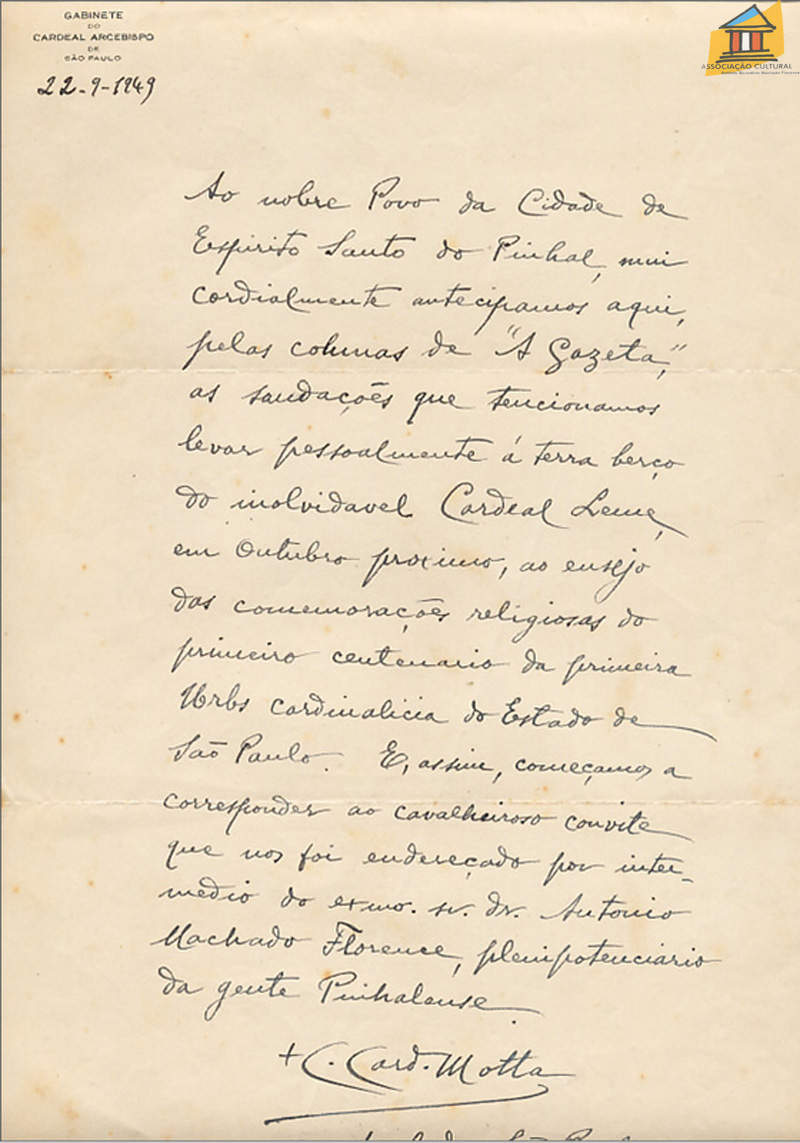 GABINETE
DO
CARDEAL ARCEBISPO
DE
SÃO PAULO
22-9-1949
ASSOCIAÇÃO CULTURAL
Ao nobre Povo da Cidade de
Espirito Santo do Pinhal, mui
cordialmente antecipamos aqui,
pelas colunas de "A Gazeta,"
as saudações que tencionamos
levar pessoalmente á terra berço
do inolvidavel Cardeal Leme,
em Outubro proximo, ao ensejo
das comemorações religiosas do
primeiro centenario da primeira
Urbs cardinalicia do Estado de
São Paulo. E, assim, começamos a
corresponder ao cavalheiroso convite
que nos foi endereçado por inter-
medio do exmo. sr. dr. Antonio
Machado Florence, plenipotenciario
da gente Pinhalense.
+ C. Card. Motta